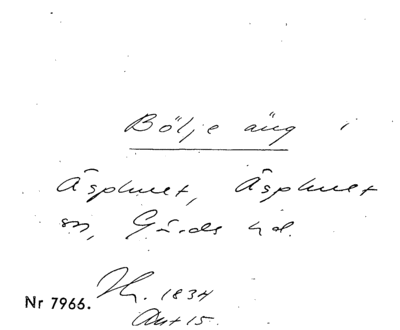 Bölje äng i
Äsphult, Äsphult
sn, Gärds hd.
Nr 7966. 1834
Akt 15.